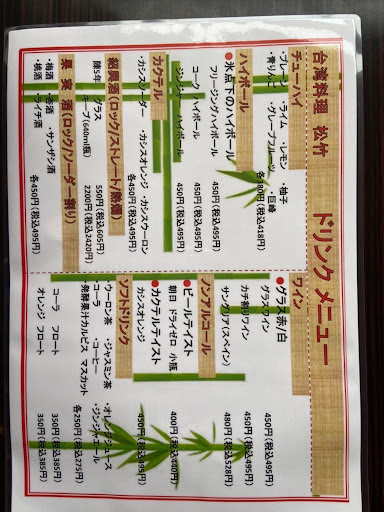 台湾料理 松竹 ドリンク メニュー
チューハイ
・プレーン ・ライム ・レモン ・柚子
・青りんご ・グレープフルーツ ・巨峰
各380円(税込418円)
ハイボール
●氷点下のハイボール
フリージングハイボール 450円(税込495円)
コーク ハイボール 450円(税込495円)
ジンジャー ハイボール 450円(税込495円)
カクテル
・カシスソーダー ・カシスオレンジ ・カシスウーロン
各450円(税込495円)
紹興酒(ロック/ストレート/熱燗)
陳5年 グラス 550円(税込605円)
キープ(640ml瓶) 2200円(税込2420円)
果実酒(ロック/ソーダー割り)
・梅酒 ・杏酒 ・サンザシ酒
・桃酒 ・ライチ酒 各450円(税込495円)
ワイン
●グラス赤/白
グラスワイン 450円(税込495円)
カチ割りワイン 450円(税込495円)
サングリア(スペイン) 480円(税込528円)
ノンアルコール
●ビールテイスト
朝日 ドライゼロ 小瓶 400円(税込440円)
●カクテルテイスト
カシスオレンジ 450円(税込495円)
ソフトドリンク
・ウーロン茶 ・ジャスミン茶 ・オレンジジュース
・コーラ ・コーヒー ・ジンジャエール
・発酵果汁カルピス マスカット 各250円(税込275円)
コーラ フロート 350円(税込385円)
オレンジ フロート 350円(税込385円)